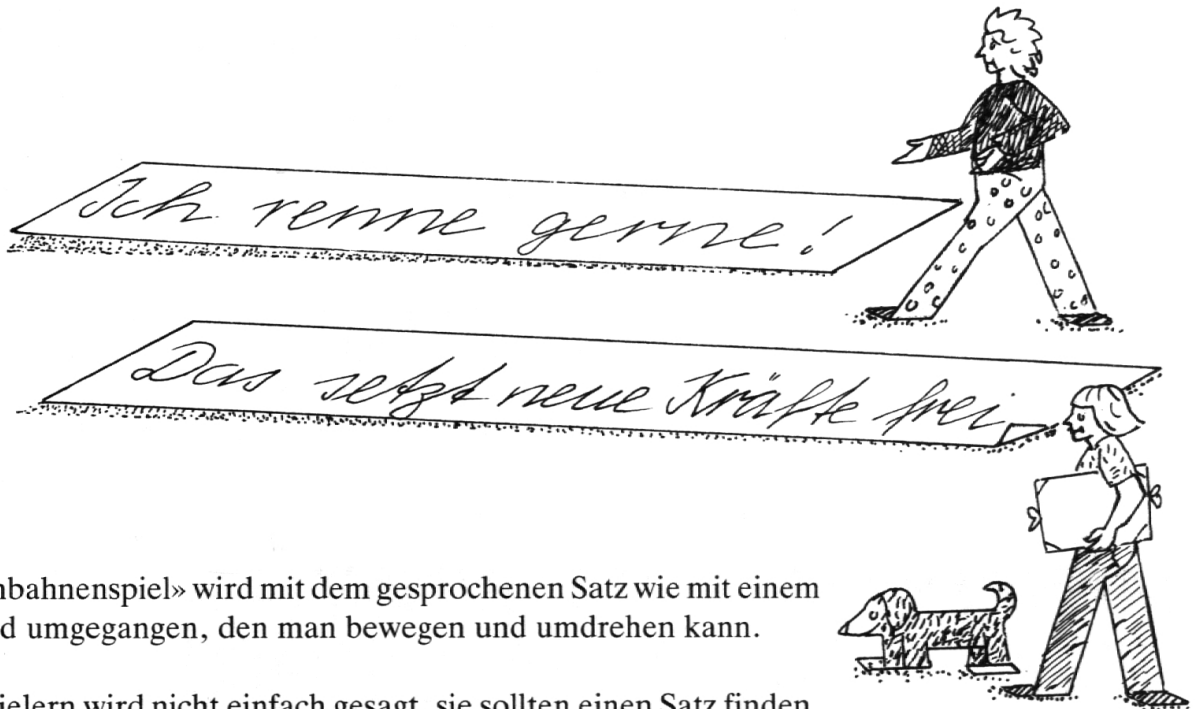 Ich renne gerne!
Das setzt neue Kräfte frei
nbahnenspiel» wird mit dem gesprochenen Satz wie mit einem
d umgegangen, den man bewegen und umdrehen kann.
ielern wird nicht einfach gesagt, sie sollten einen Satz finden